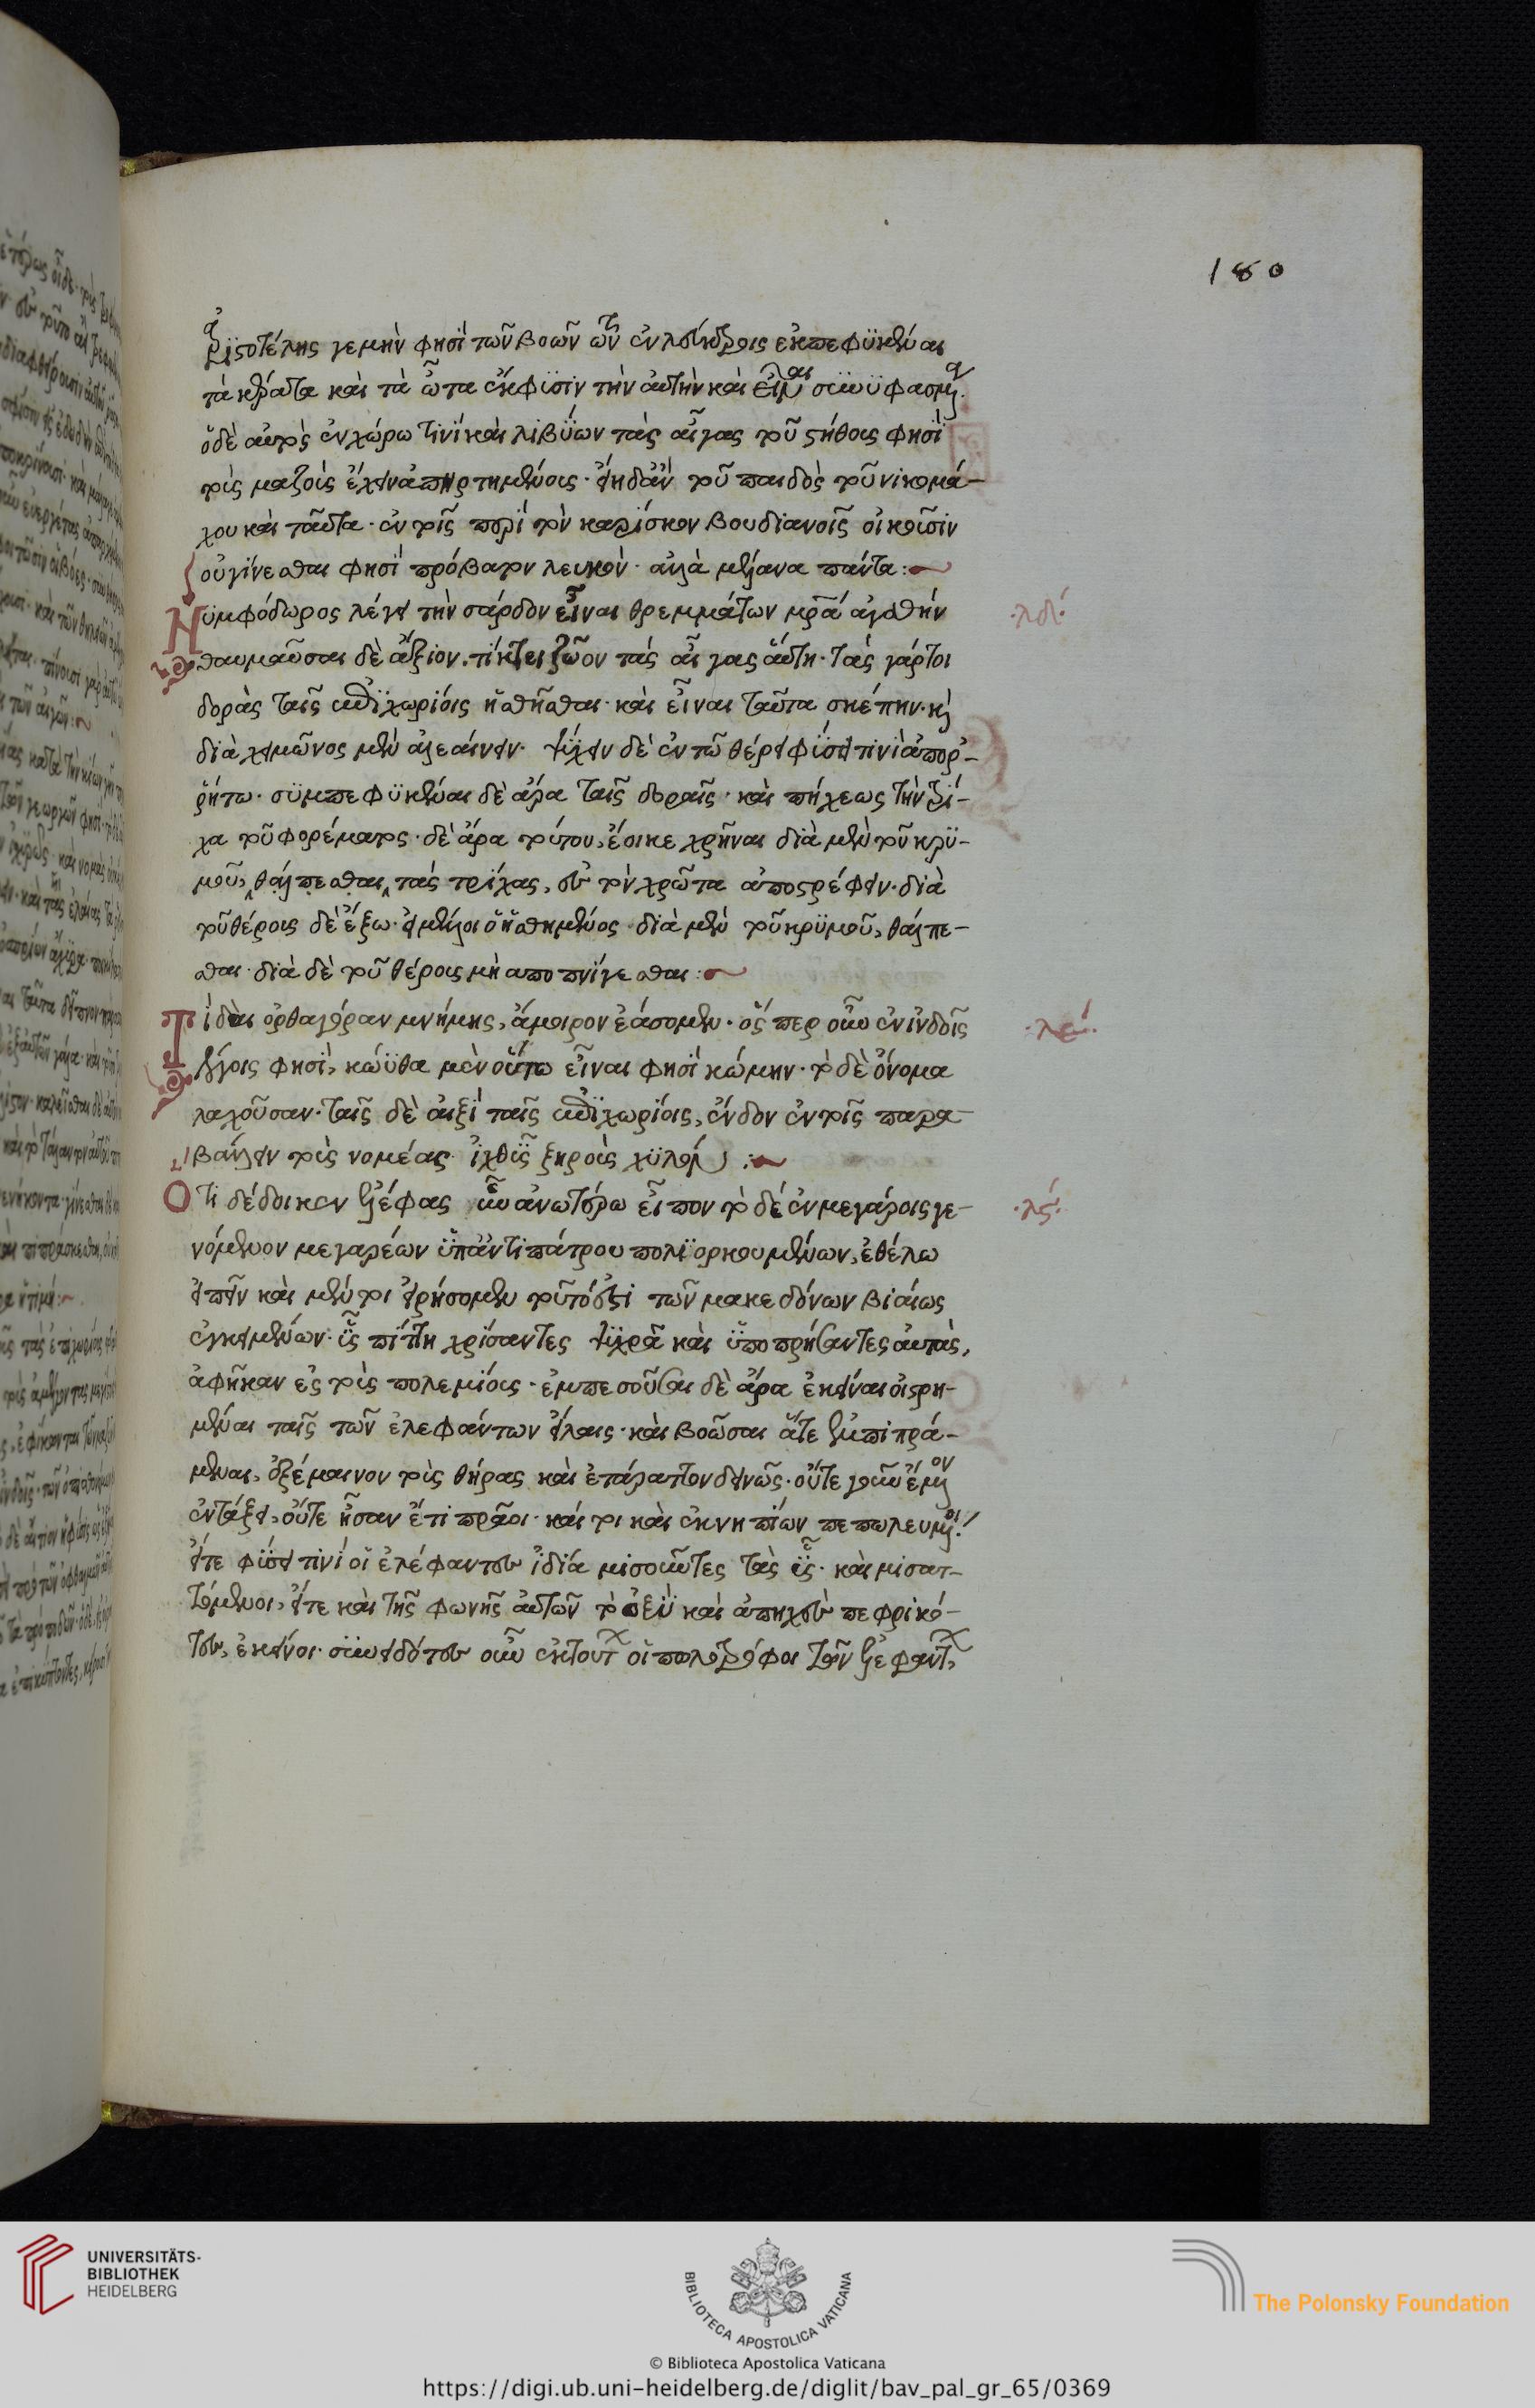 180
ἀριστοτέλης γε μὴν φησὶ τῶν βοῶν τῶν ἐν λεύκτροις ἐκπεφυκέναι
τὰ κέρατα καὶ τὰ ὦτα ἔκφυσιν τὴν αὐτὴν καὶ εἶναι συνυφασμένα.
ὁ δὲ αὐτὸς ἐν χώρω τινὶ καὶ λιβύων τὰς αἶγας τοῦ στήθους φησὶ
τοὺς μαζοὺς ἔχειν ἀπηρτημένους. εἴη δ' ἂν τοῦ παιδὸς τοῦ νικομά-
χου καὶ ταῦτα. ἐν τοῖς περὶ τὸν καρίσκον βουδιανοῖς οἰκοῦσιν
οὐ γίνεσθαι φησὶ πρόβατον λευκὸν. ἀλλὰ μέλανα πάντα:
Νυμφόδωρος λέγει τὴν σάρδον εἶναι θρεμμάτων μητέρα ἀγαθήν
·λδ·
θαυμάσαι δὲ ἄξιον. τίκτει ζῶον τὰς αἶγας αὕτη. τὰς γάρ τοι
δορὰς ταῖς ἐπιχωρίοις ἠσθῆσθαι. καὶ εἶναι ταῦτα σκέπην. καὶ
διὰ χειμῶνος μὲν ἀλεαίνειν. ψύχειν δὲ ἐν τῶ θέρει φύσει τινὶ ἀπορ-
ρήτω. συμπεφυκέναι δὲ ἄρα ταῖς δοραῖς. καὶ πήχεως τὴν τρί-
χα τοῦ φορέματος. δὲ ἄρα τούτου, ἔοικε χρῆναι διὰ μὲν τοῦ κρυ-
μοῦ, θάλπεσθαι, τὰς τρίχας, ἐς τὸν χρῶτα ἀποστρέφειν. διὰ
τοῦ θέρους δὲ ἔξω. εἰ μέλλοι ὁ ἠσθημένος διὰ μὲν τοῦ κρυμοῦ, θάλπε-
σθαι. διὰ δὲ τοῦ θέρους μὴ αποπνίγεσθαι:
Τί δαὶ ὀρθαγόραν μνήμης, ἄμοιρον ἐάσομεν. ὅς περ οὖν ἐν ἰνδοῖς
·λε·
λόγοις φησὶ, κώϋθα μὲν οὕτω εἶναι φησὶ κώμην. τὸ δὲ ὄνομα
λαχοῦσαν. ταῖς δὲ αἰξὶ ταῖς ἐπιχωρίοις, ἔνδον ἐν τοῖς παρα-
βάλλειν τοὺς νομέας ἰχθῦς ξηροὺς χιλόν:
Ὅτι δέδοικεν ἐλέφας ὗν ἀνωτέρω εἶπον τὸ δὲ ἐν μεγάροις γε-
·λϛ·
νόμενον μεγαρέων ὑπ' ἀντιπάτρου πολιορκουμένων, ἐθέλω
εἰπεῖν καὶ μέν τοι εἰρήσομεν τοῦτό ἐστι τῶν μακεδόνων βιαίως
ἐγκειμένων. ὗς πίττη χρίσαντες ὑγρᾶ καὶ ὑποπρήσαντες αὐτὰς,
ἀφῆκαν ἐς τοὺς πολεμίους. ἐμπεσοῦσαι δὲ ἄρα ἐκεῖναι οἰστρη-
μέναι ταῖς τῶν ἐλεφάντων εἴλαις. καὶ βοῶσαι ἅτε ἐμπιπρά-
μεναι, ἐξέμαινον τοὺς θῆρας καὶ ἐτάραττον δεινῶς. οὔτε γοῦν ἔμενον
ἐν τάξει, οὔτε ἦσαν ἔτι πρᾶοι. καί τοι καὶ ἐκ νηπίων πεπωλευμένοι.
εἴτε φύσει τινὶ οἱ ἐλέφαντες ἰδία μισοῦντες τὰς ὗς. καὶ μυσατ-
τόμενοι, εἴτε καὶ τῆς φωνῆς αὐτῶν τὸ ὀξὺ καὶ ἀπηχὲς πεφρικό-
τες, ἐκεῖνοι. συνειδότες οὖν ἐκ τούτων οἱ πωλοτρόφοι τῶν ἐλεφάντων,
UNIVERSITÄTS-
BIBLIOTHEK
HEIDELBERG
BIBLIOTECA APOSTOLICA VATICANA
The Polonsky Foundation
© Biblioteca Apostolica Vaticana
https://digi.ub.uni-heidelberg.de/diglit/bav_pal_gr_65/0369